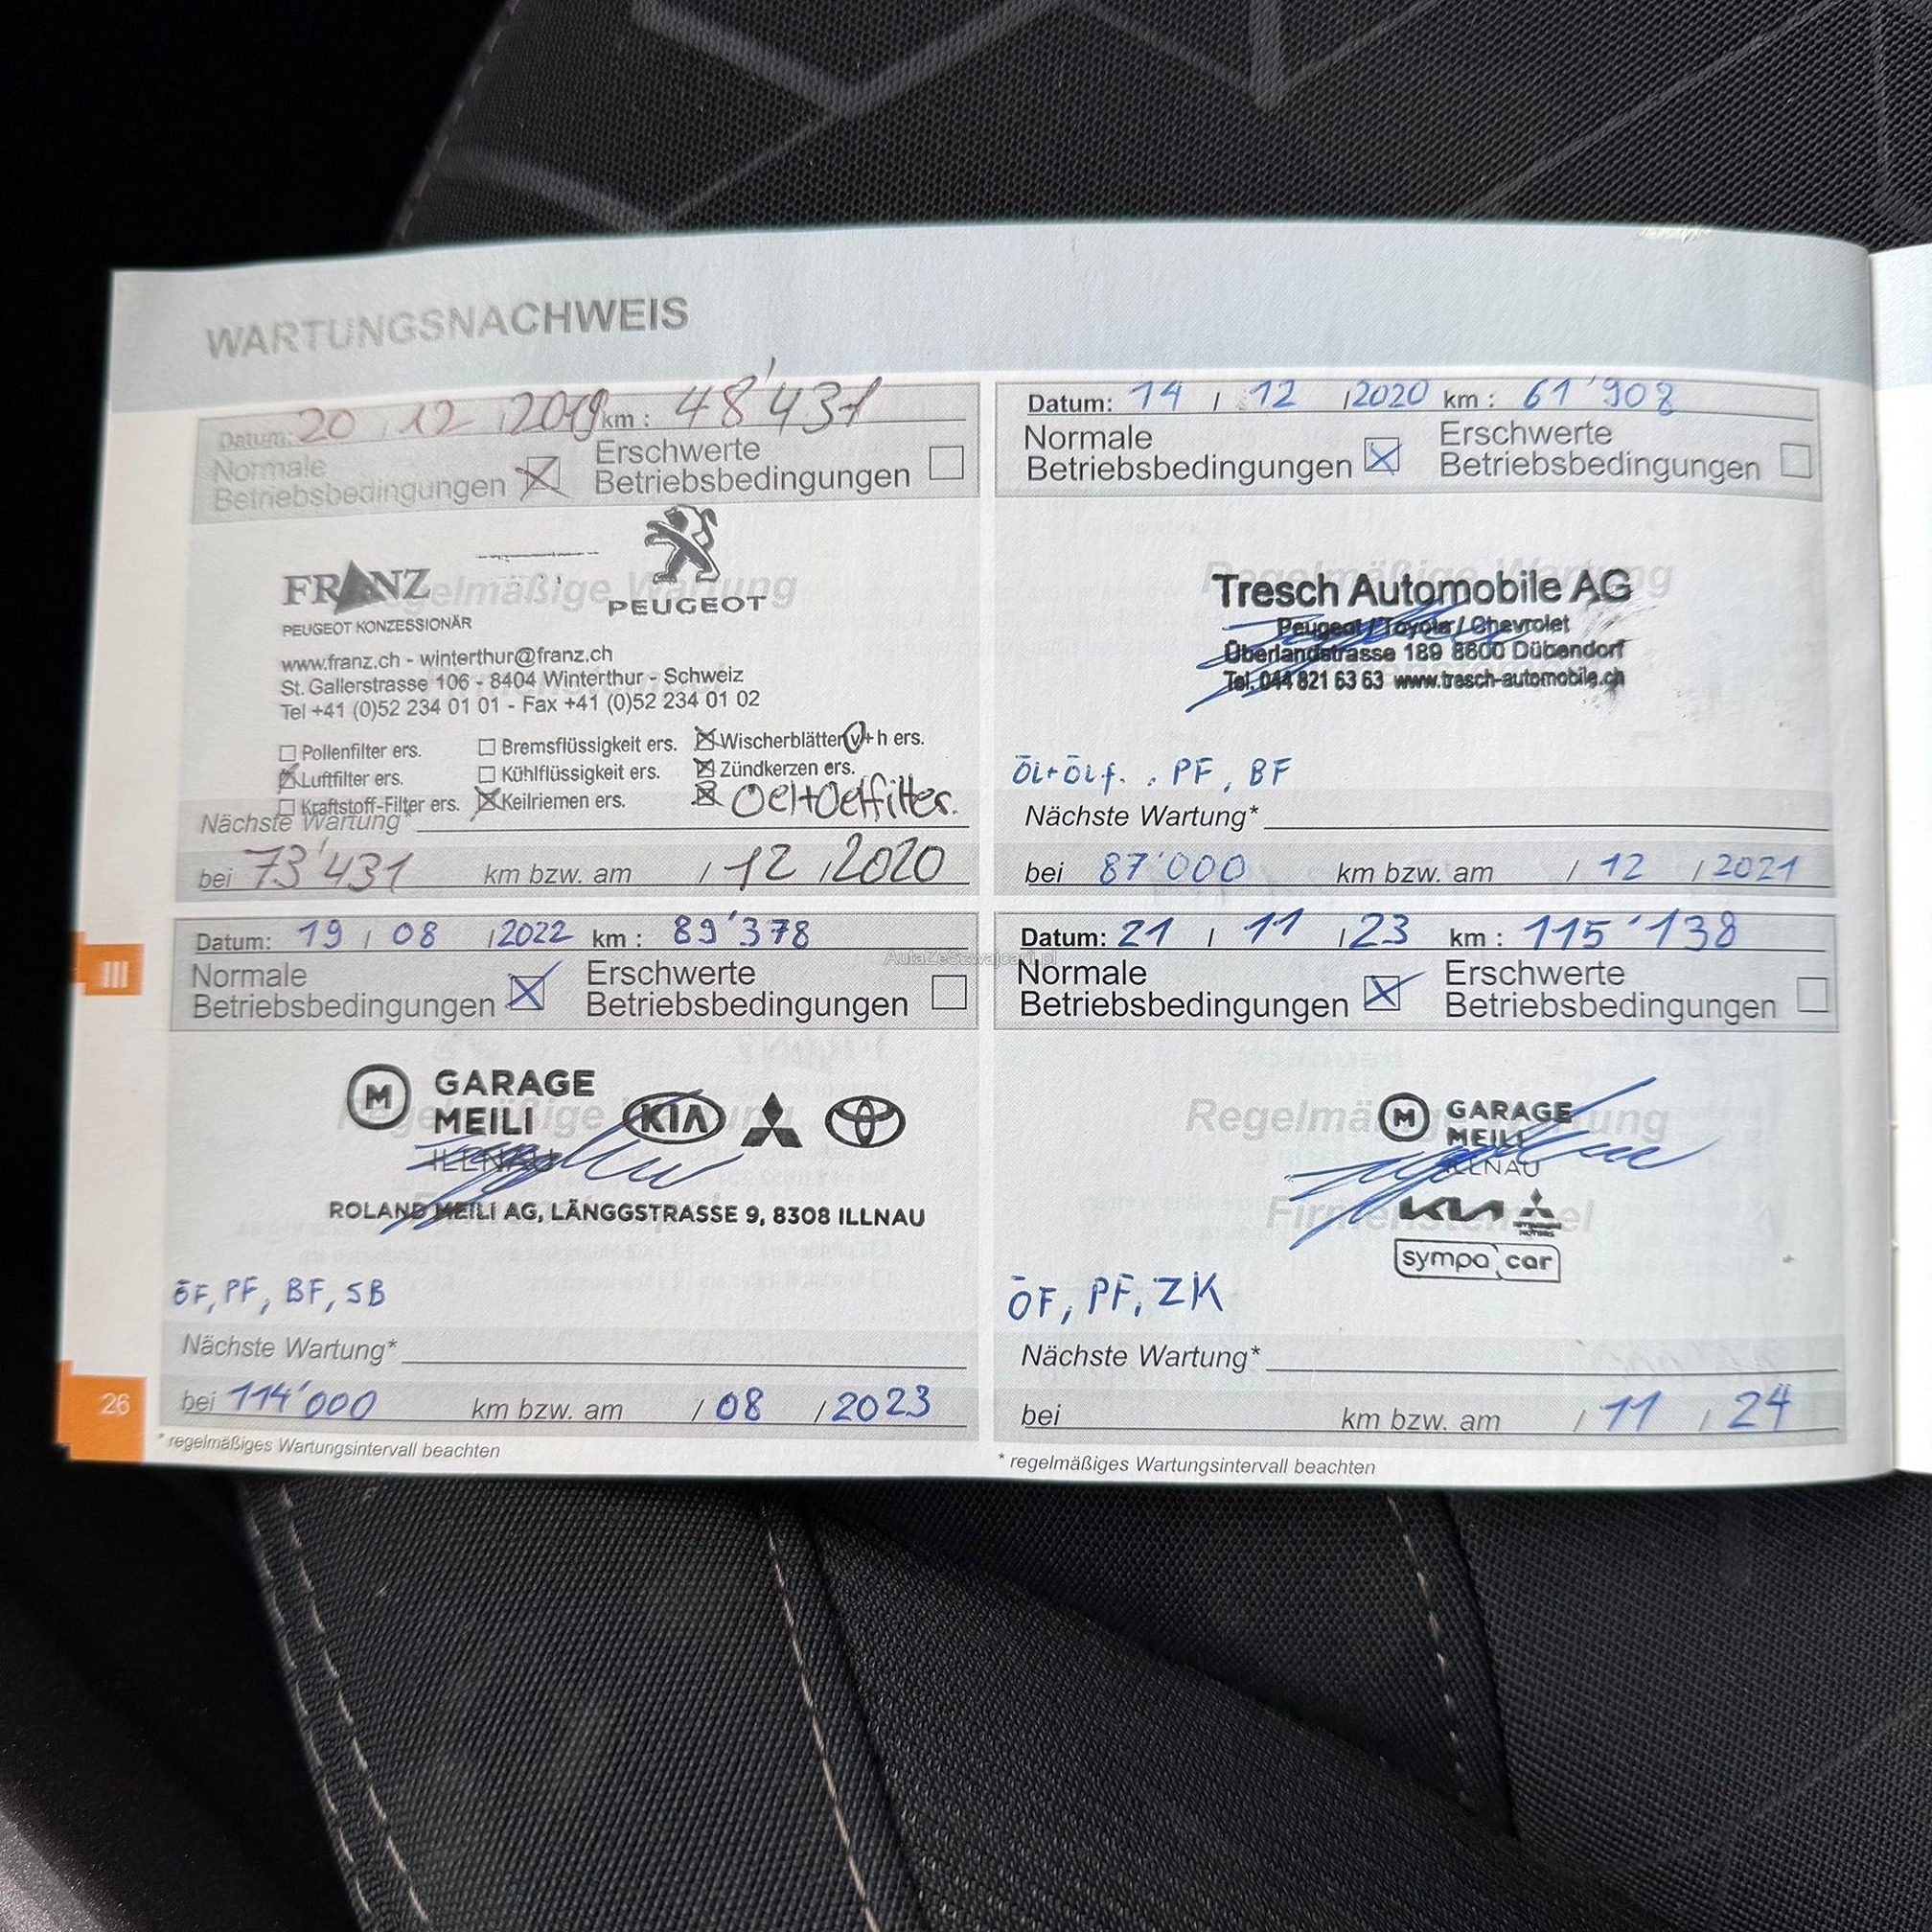 WARTUNGSNACHWEIS
Datum: 20 / 12 / 2019 km : 48'431
Normale Betriebsbedingungen ☒ Erschwerte Betriebsbedingungen ☐
Regelmäßige Wartung
FRANZ
PEUGEOT
PEUGEOT KONZESSIONÄR
www.franz.ch - winterthur@franz.ch
St. Gallerstrasse 106 - 8404 Winterthur - Schweiz
Tel +41 (0)52 234 01 01 - Fax +41 (0)52 234 01 02
☐ Pollenfilter ers. ☐ Bremsflüssigkeit ers. ☒ Wischerblätter v+h ers.
☒ Luftfilter ers. ☐ Kühlflüssigkeit ers. ☒ Zündkerzen ers.
☐ Kraftstoff-Filter ers. ☒ Keilriemen ers. ☒ Oel+Oelfilter.
Nächste Wartung*
bei 73'431 km bzw. am / 12 / 2020
Datum: 14 / 12 / 2020 km : 61'908
Normale Betriebsbedingungen ☒ Erschwerte Betriebsbedingungen ☐
Regelmäßige Wartung
Tresch Automobile AG
Peugeot / Toyota / Chevrolet
Überlandstrasse 189 8600 Dübendorf
Tel. 044 821 63 63 www.tresch-automobile.ch
ÖL+ÖLf. , PF, BF
Nächste Wartung*
bei 87'000 km bzw. am / 12 / 2021
Datum: 19 / 08 / 2022 km : 89'378
Normale Betriebsbedingungen ☒ Erschwerte Betriebsbedingungen ☐
Regelmäßige Wartung
M GARAGE
MEILI KIA
ILLNAU
ROLAND MEILI AG, LÄNGGSTRASSE 9, 8308 ILLNAU
ÖF, PF, BF, SB
Nächste Wartung*
bei 114'000 km bzw. am / 08 / 2023
Datum: 21 / 11 / 23 km : 115'138
Normale Betriebsbedingungen ☒ Erschwerte Betriebsbedingungen ☐
Regelmäßige Wartung
M GARAGE
MEILI
ILLNAU
Firmenstempel
KIA
sympa car
ÖF, PF, ZK
Nächste Wartung*
bei km bzw. am / 11 / 24
* regelmäßiges Wartungsintervall beachten
* regelmäßiges Wartungsintervall beachten
III
26
AutaZeSzwajcarii.pl